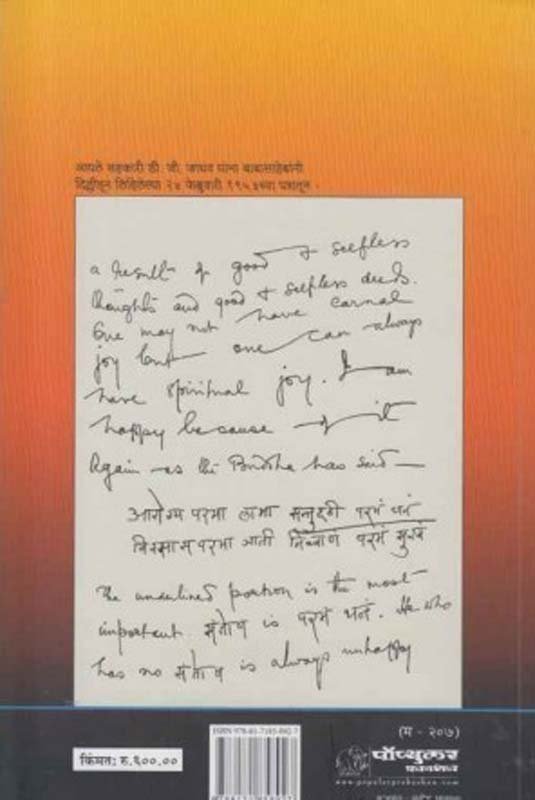 आपले सहकारी डी. जी. जाधव यांना बाबासाहेबांनी
दिल्लीहून लिहिलेल्या २४ फेब्रुवारी १९५३च्या पत्रातून -
a result of good & selfless
thoughts and good & selfless deeds.
One may not have carnal
joy but one can always
have spiritual joy. I am
happy because of it
Again as the Buddha has said –
आरोग्य परमा लाभा सन्तुठ्ठी परमं धनं
विस्सास परमा ञाती निब्बाण परमं सुखं
the underlined portion is the most
important संतोष is परमं धनं. He who
has no संतोष is always unhappy
किंमत: रु.६००.००
(म - २०७)
पॉप्युलर
प्रकाशन
www.popularprakashan.com